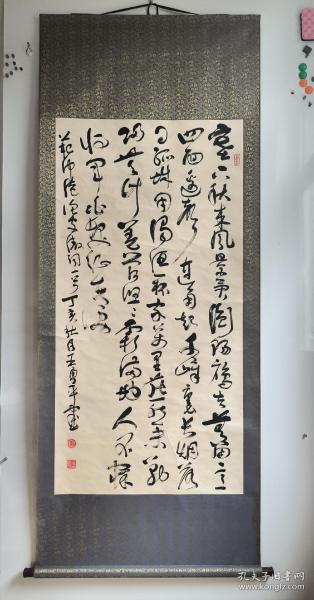 塞下秋来风景异衡阳雁去无留意
四面边声连角起千嶂里长烟落
日孤城闭浊酒一杯家万里燕然未勒
归无计羌管悠悠霜满地人不寐
将军白发征夫泪
范仲淹 词一首丁亥 月王勇平书
孔夫子旧书网